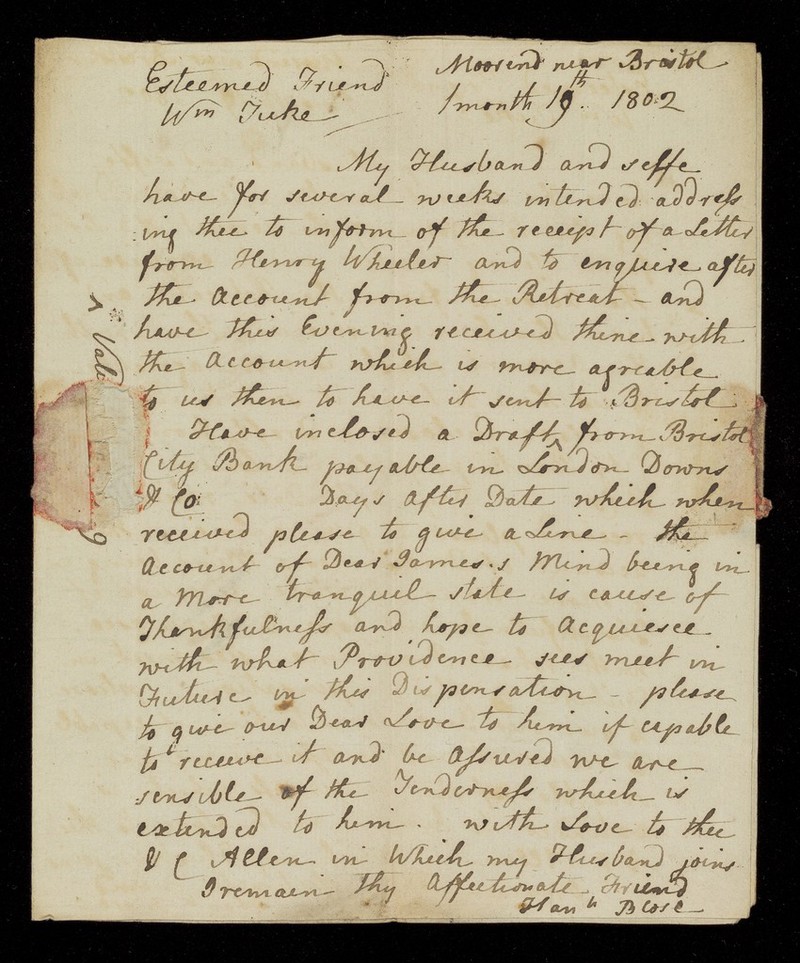 Moorend near Bristol
Esteemed Friend
1 month 19th. 1802
Wm Tuke
My Husband and selfe
have for several weeks intended address
:ing thee to inform of the receipt of a Letter
from Henry Wheeler and to enquire after
the Account from the Retreat - and
have this Evening received thine with
the Account which is more agreable
to us then to have it sent to Bristol
Have inclosed a Draft ^ from Bristol
City Bank payable in London Downs
& Co Days after Date which when
received please to give a Line - the
Account of Dear James.s Mind being in
a More tranquil state is cause of
Thankfulness and hope to Acquiesce
with what Providence sees meet in
Future in this Dispensation - please
to give our Dear Love to him if capable
to receive it and be Assured we are
sensible of the Tenderness which is
extended to him. with Love to thee
& C Allen in Which my Husband joins
I remain thy Affectionate Friend
Hanh
^ Val
9